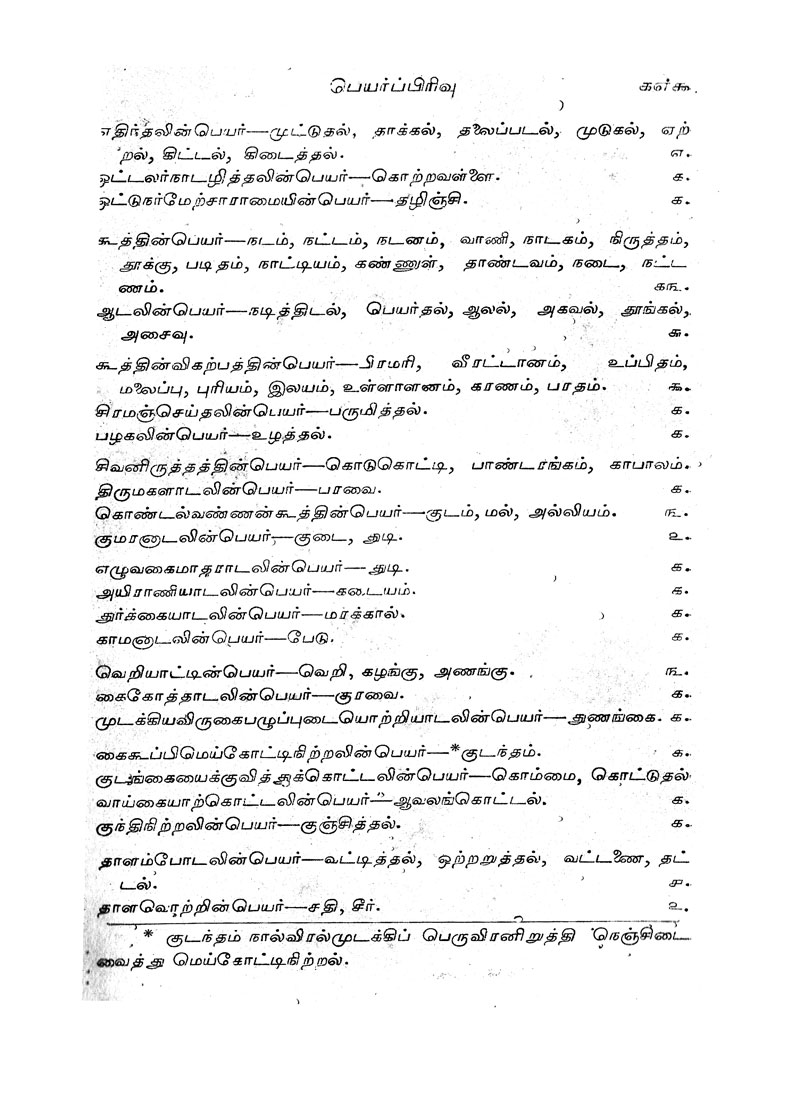 பெயர்ப்பிரிவு ௧௭௯
எதிர்தலின்பெயர்—முட்டுதல், தாக்கல், தலைப்படல், முடுகல், ஏற்
றல், கிட்டல், கிடைத்தல். ௭.
ஒட்டலர்நாடழித்தலின்பெயர்—கொற்றவள்ளை. ௧.
ஒட்டுநர்மேற்சாராமையின்பெயர்—தழிஞ்சி. ௧.
கூத்தின்பெயர்—நடம், நட்டம், நடனம், வாணி, நாடகம், நிருத்தம்,
தூக்கு, படிதம், நாட்டியம், கண்ணுள், தாண்டவம், நடை, நட்ட
ணம். ௧௩.
ஆடலின்பெயர்—நடித்திடல், பெயர்தல், ஆலல், அகவல், தூங்கல்,
அசைவு. ௬.
கூத்தின்விகற்பத்தின்பெயர்—பிரமரி, வீரட்டானம், உப்பிதம்,
மலைப்பு, புரியம், இலயம், உள்ளாளனம், கரணம், பரதம். ௯.
சிரமஞ்செய்தலின்பெயர்—பருமித்தல். ௧.
பழகலின்பெயர்—உழத்தல். ௧.
சிவனிருத்தத்தின்பெயர்—கொடுகொட்டி, பாண்டரங்கம், காபாலம்.
திருமகளாடலின்பெயர்—பாவை. ௧.
கொண்டல்வண்ணன்கூத்தின்பெயர்—குடம், மல், அல்லியம். ௩.
குமரனாடலின்பெயர்—குடை, துடி. ௨.
எழுவகைமாதராடலின்பெயர்—துடி. ௧.
அயிராணியாடலின்பெயர்—கடையம். ௧.
துர்க்கையாடலின்பெயர்—மரக்கால். ௧.
காமனாடலின்பெயர்—பேடு. ௧.
வெறியாட்டின்பெயர்—வெறி, கழங்கு, அணங்கு. ௩.
கைகோத்தாடலின்பெயர்—குரவை. ௧.
முடக்கியவிருகைபழுப்புடையொற்றியாடலின்பெயர்—துணங்கை. ௧.
கைகூப்பிமெய்கோட்டிநிற்றலின்பெயர்—*குடந்தம். ௧.
குடங்கையைக்குவித்துக்கொட்டலின்பெயர்—கொம்மை, கொட்டுதல்
வாய்கையாற்கொட்டலின்பெயர்—ஆவலங்கொட்டல். ௧.
குந்திநிற்றலின்பெயர்—குஞ்சித்தல். ௧.
தாளம்போடலின்பெயர்—வட்டித்தல், ஒற்றறுத்தல், வட்டணை, தட்
டல். ௪.
தாளவொற்றின்பெயர்—சதி, சீர். ௨.
* குடந்தம் நால்விரல்முடக்கிப் பெருவிரனிறுத்தி நெஞ்சிடை
வைத்து மெய்கோட்டிநிற்றல்.